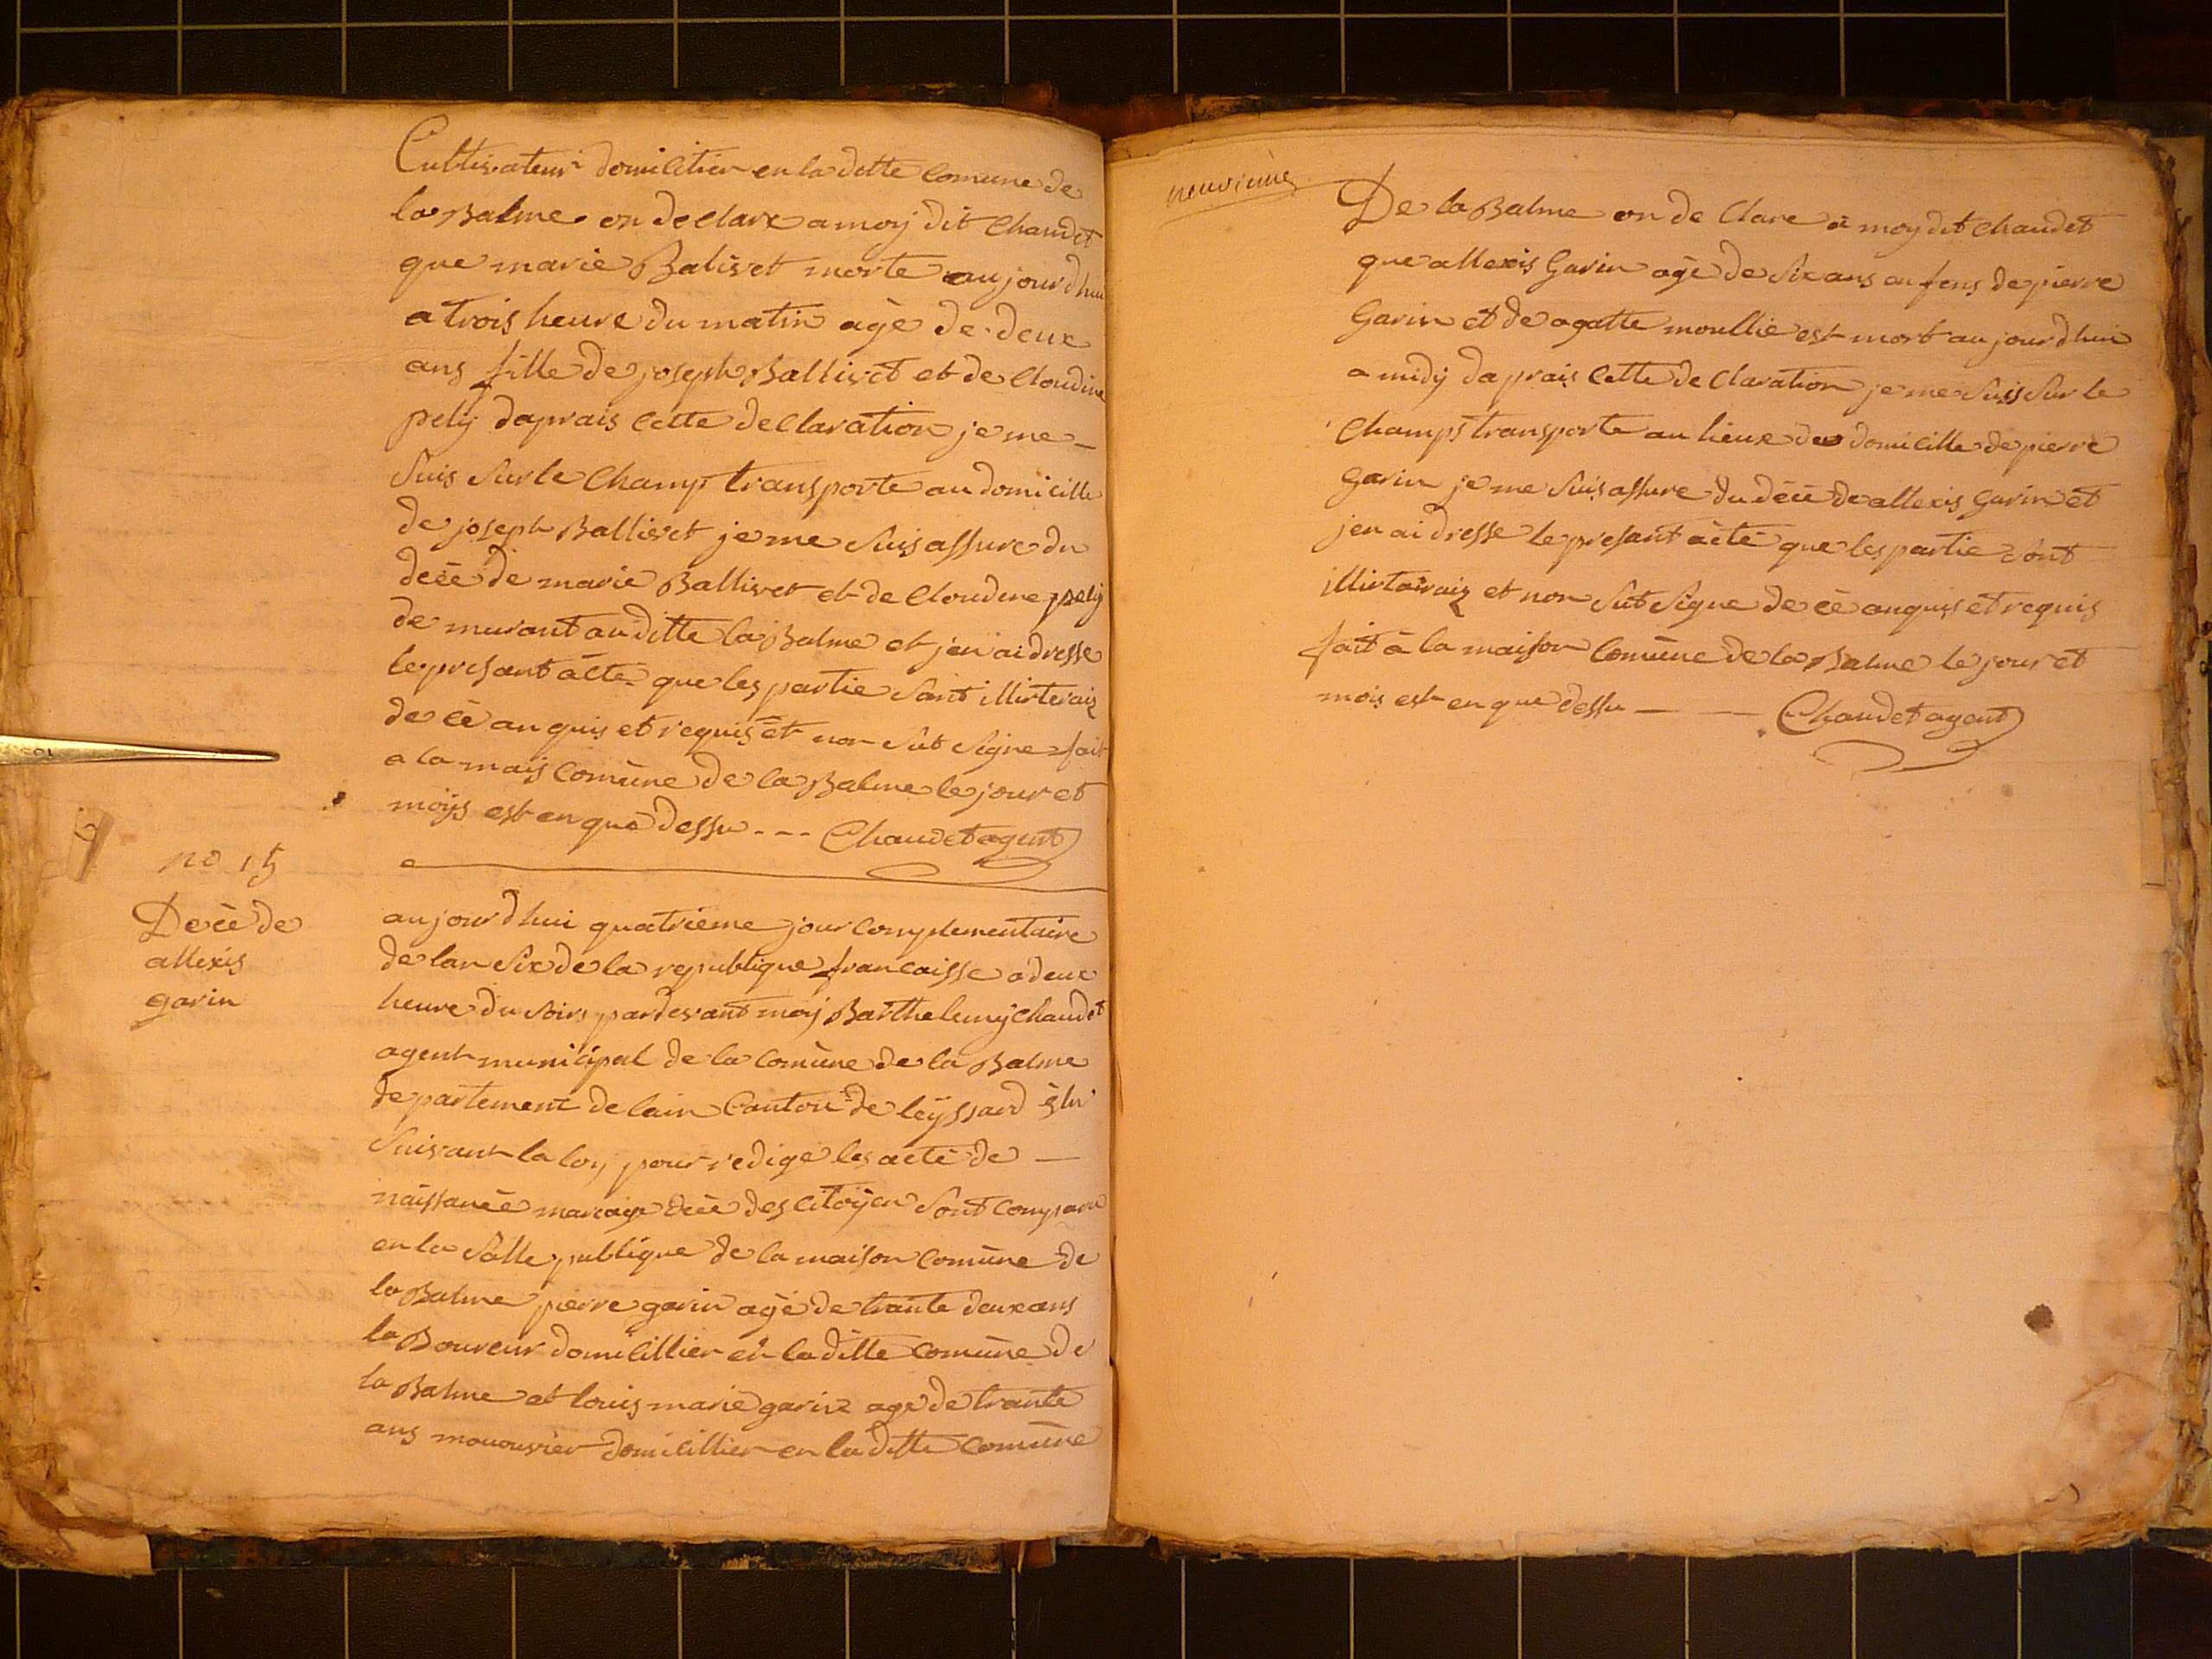 Cultivateur domicilier en la ditte Comune de
la Balme on declare a moy dit Chaudet
que marie Balivet morte aujourdhui
a trois heure du matin agè de deux
ans fille de joseph Ballivet et de Cloudine
pely daprais Cette declaration je me
suis sur le Champ transporte au domicille
de joseph Ballivet je me suis assure du
decè de marie Ballivet et de Cloudine pely
de murant au ditte la Balme et jen ai dresse
le presant acte que les partie sont illirteraiz
de cè anquis et requis et non sut signe fait
a la mais Comune de la Balme le jour et
moys est an que dessu --- Chaudet agent
no 15
Decè de
allexis
garin
aujourdhui quatrieme jour Complementaire
de lan six de la republique francaisse a deux
heure du soirs pardevant moy Barthelemy Chaudet
agent municipal de la Comune de la Balme
departement de lain Canton de leyssard elu
suivant la loy pour redige les acte de
naissance mariage decè des Citoyen sont Comparu
en la salle publique de la maison Comune de
la Balme pierre garin agé de trante deux ans
la Boureur domicillier en la ditte Comune de
la Balme et louis marie garin age de trante
ans monouvrier domicillier en la ditte Comune
neuvieme
De la Balme on de Clare a moy dit Chaudet
que allexis Garin agé de six ans enfens de pierre
Garin et de agatte moullie est mort aujourdhui
a midy daprais Cette de Claration je me suis sur le
Champs transporte au lieux du domicille de pierre
garin je me suis assure du decè de allexis garin et
jen ai dresse le presant acte que les partie sont
illirtairaiz et non sut signe de cè anquis et requis
fait à la maison Comune de la Balme le jour et
mois est en que dessu — — Chaudet agent